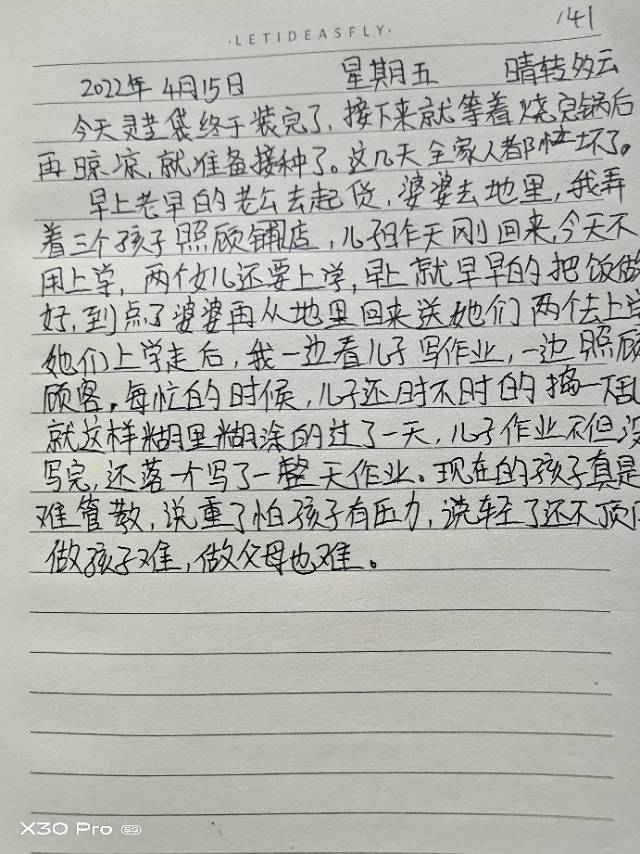 141
·LETIDEASFLY·
2022年4月15日 星期五 晴转多云
今天灵芝袋终于装完了,接下来就等着烧完锅后
再晾凉,就准备接种了。这几天全家人都忙坏了。
早上老早的老公去起货,婆婆去地里,我弄
着三个孩子照顾铺店,儿子昨天刚回来,今天不
用上学,两个女儿还要上学,早上就早早的把饭做
好,到点了婆婆再从地里回来送她们两个去上学
她们上学走后,我一边看儿子写作业,一边照顾
顾客,每忙的时候,儿子还时不时的捣一乱
就这样糊里糊涂的过了一天,儿子作业不但没
写完,还落一个写了一整天作业。现在的孩子真是
难管教,说重了怕孩子有压力,说轻了还不顶
做孩子难,做父母也难。
X30 Pro 5G